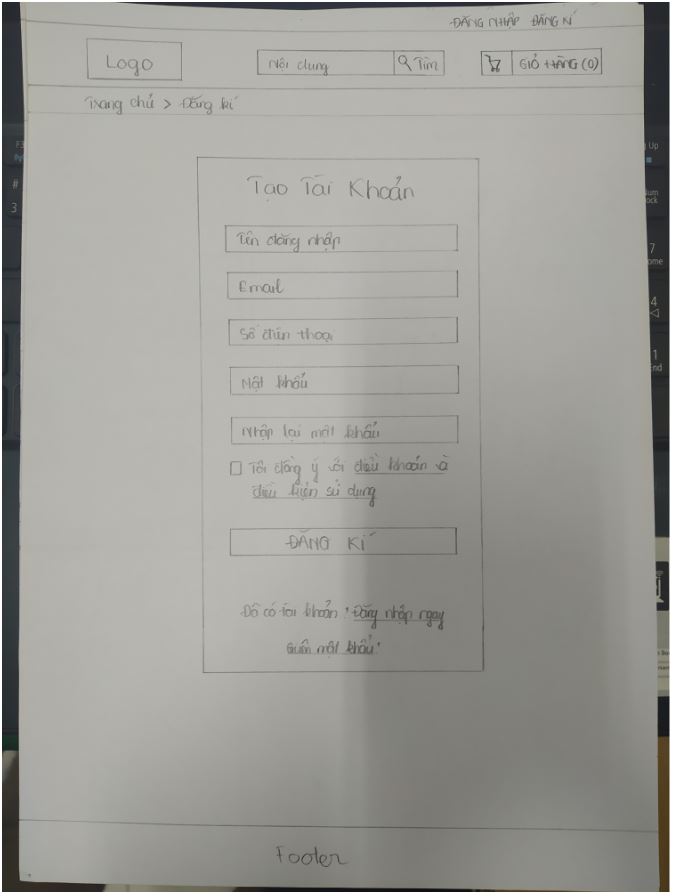 ĐĂNG NHẬP ĐĂNG KÍ
Logo
Nội dung
Tìm
GIỎ HÀNG (0)
Trang chủ > Đăng kí
Tạo Tài Khoản
Tên đăng nhập
Email
Số điện thoại
Mật khẩu
Nhập lại mật khẩu
Tôi đồng ý với điều khoản và
điều kiện sử dụng
ĐĂNG KÍ
Đã có tài khoản? Đăng nhập ngay
Quên mật khẩu?
Footer